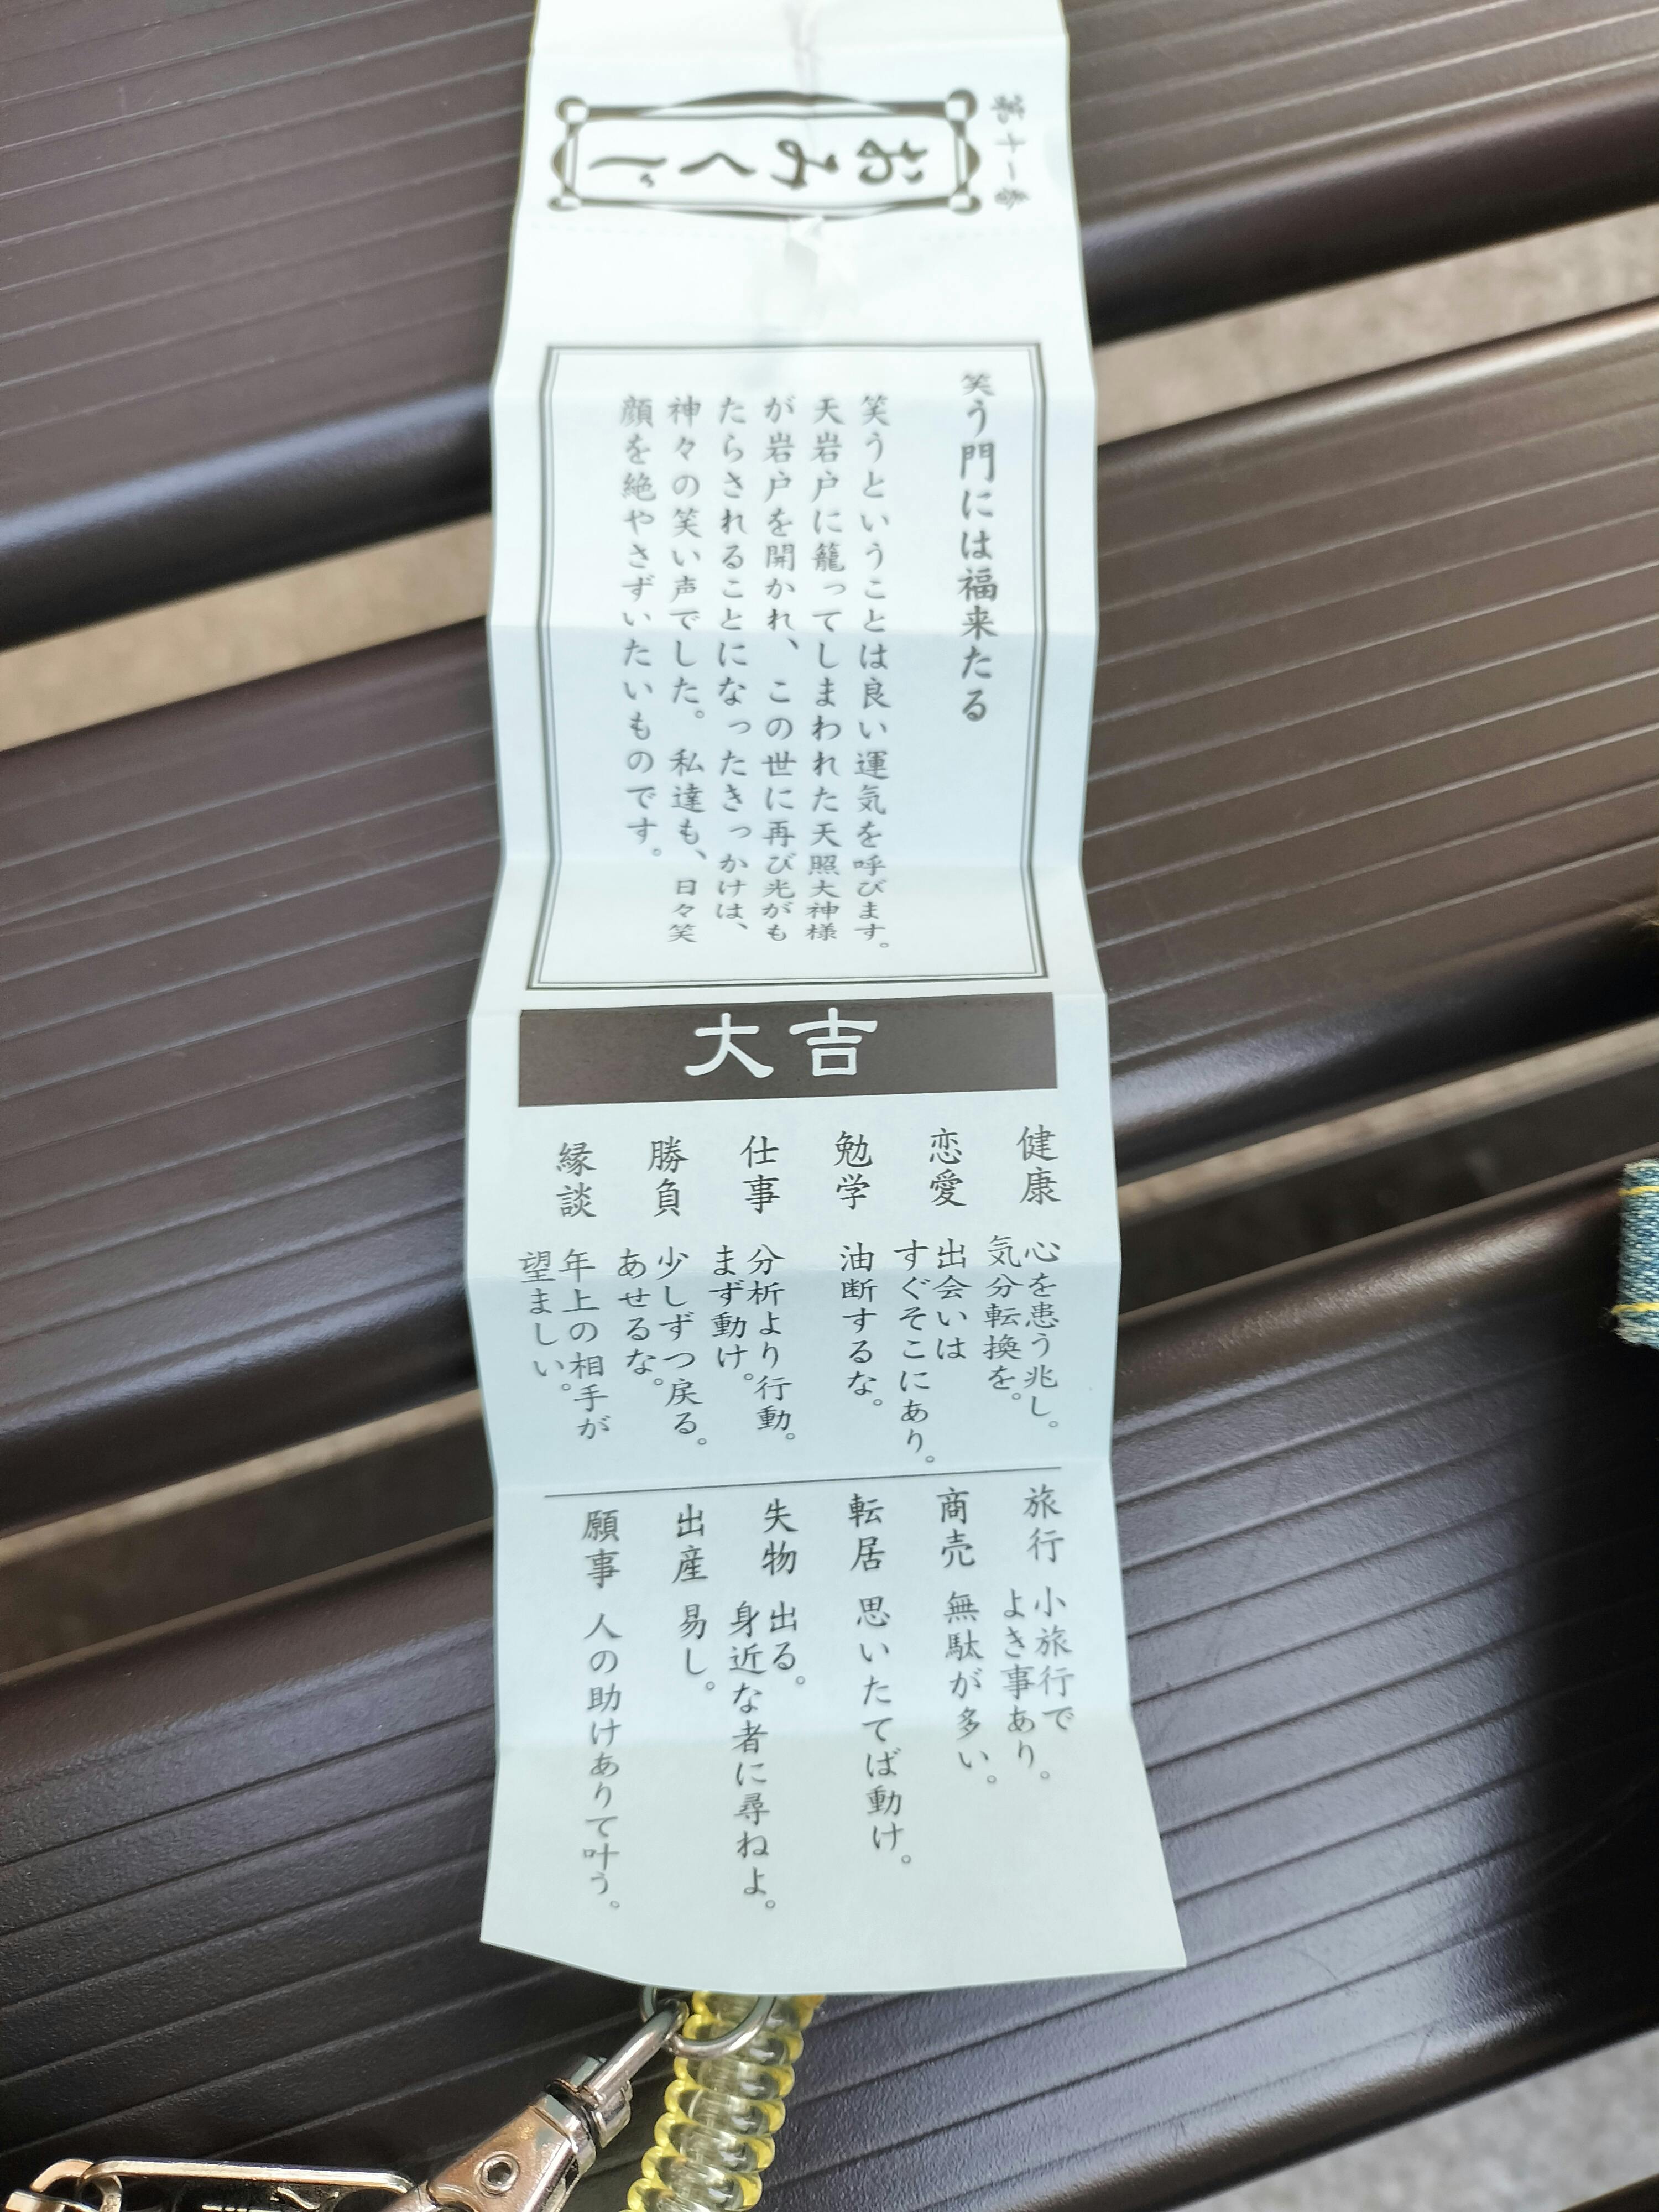 第十一番
おみくじ
笑う門には福来たる
笑うということは良い運気を呼びます。
天岩戸に籠ってしまわれた天照大神様
が岩戸を開かれ、この世に再び光がも
たらされることになったきっかけは、
神々の笑い声でした。私達も、日々笑
顔を絶やさずいたいものです。
大吉
健康 心を患う兆し。
気分転換を。
恋愛 出会いは
すぐそこにあり。
勉学 油断するな。
仕事 分析より行動。
まず動け。
勝負 少しずつ戻る。
あせるな。
縁談 年上の相手が
望ましい。
旅行 小旅行で
よき事あり。
商売 無駄が多い。
転居 思いたてば動け。
失物 出る。
身近な者に尋ねよ。
出産 易し。
願事 人の助けありて叶う。